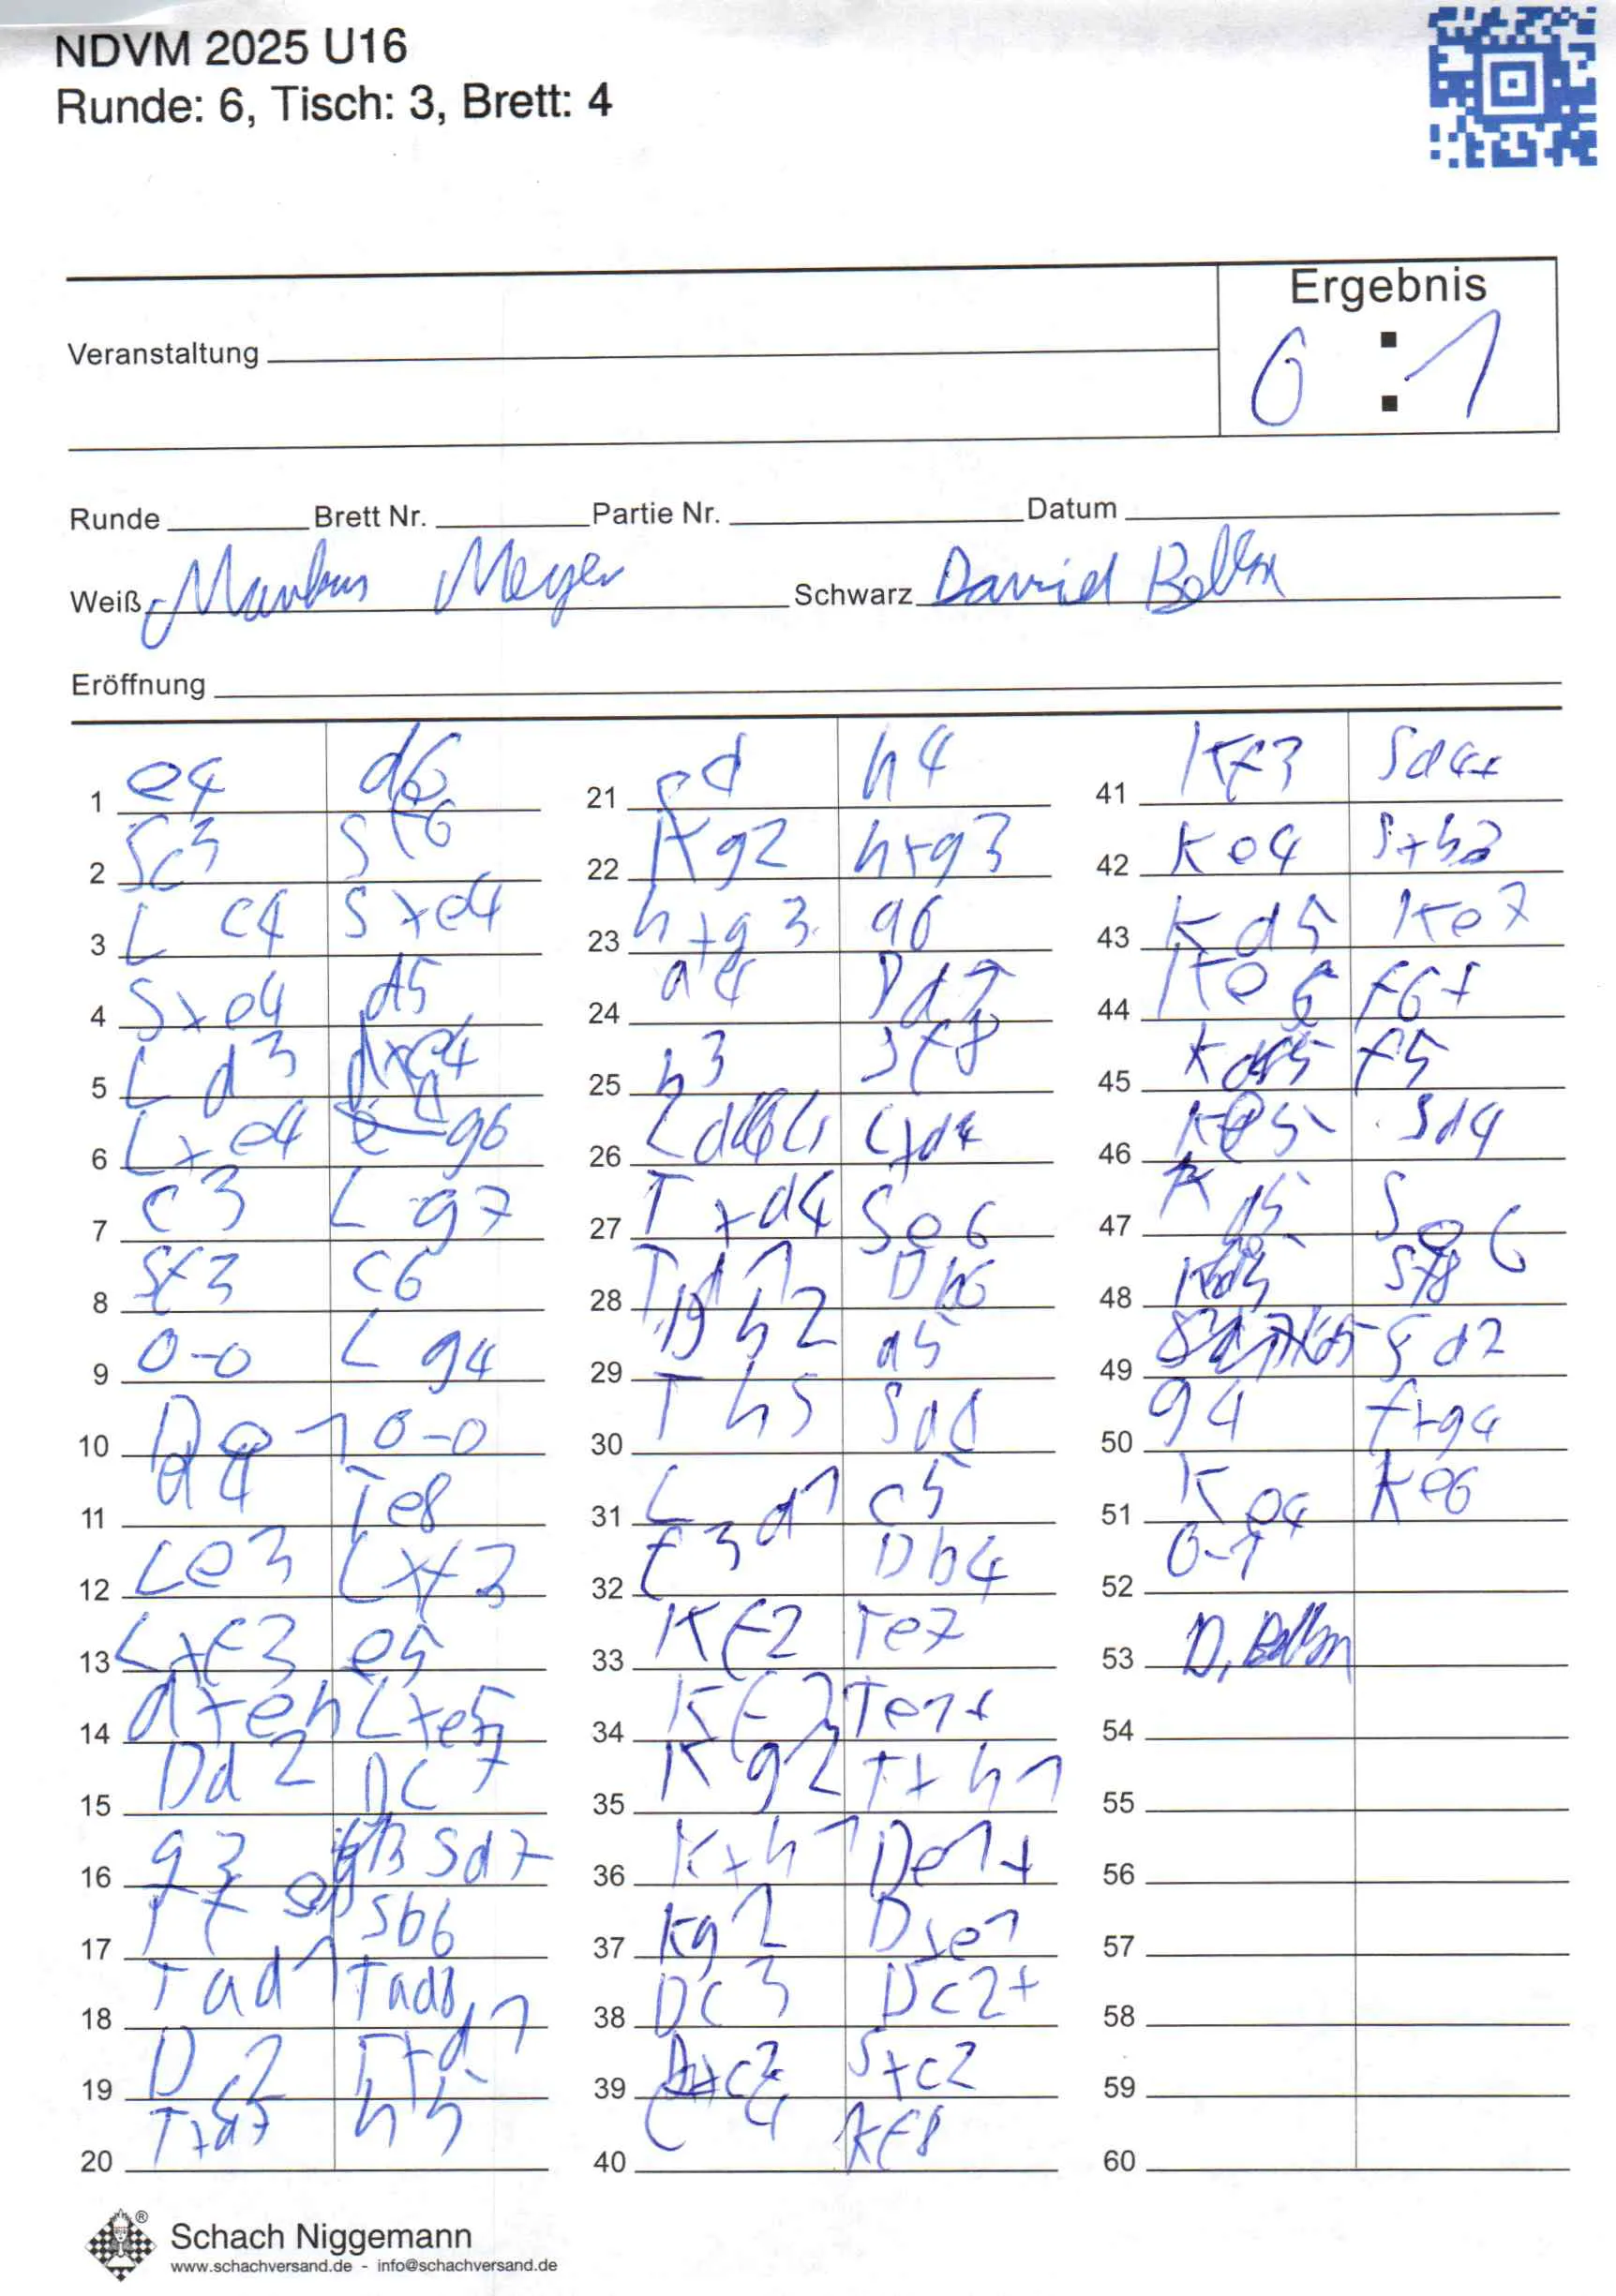 NDVM 2025 U16
Runde: 6, Tisch: 3, Brett: 4
Ergebnis
Veranstaltung
0 : 1
Runde Brett Nr. Partie Nr. Datum
Weiß Markus Meyer Schwarz David
Eröffnung
1 e4 d6
2 Sc3 Sf6
3 Lc4 Sxe4
4 Sxe4 d5
5 Ld3 dxe4
6 Lxe4 g6
7 c3 Lg7
8 Sf3 c6
9 0-0 Lg4
10 De1 0-0
11 d4 Te8
12 Le3 Lxf3
13 Lxf3 e5
14 dxe5 Lxe5
15 Dd2 Dc7
16 g3 Sd7
17 Sb6
18 Tad1 Tad8
19 Dc2 Txd1
20 Txd1 h5
21 h4
22 Kg2 hxg3
23 hxg3 a6
24 a4 Dd7
25 b3
26 Ld4 Lxd4
27 Txd4 Se6
28 Td1 Db6
29 Th2 a5
30 Th5 Sd8
31 Ld1 c5
32 f3 Db4
33 Kf2 Te7
34 Te1+
35 Kg2 Txh1
36 Kxh1 De1+
37 Kg2 Dxe1
38 Dc3 Dc2+
39 Sxc2
40 Kf8
41 Kf3 Sd4+
42 Ke4 Sxb3
43 Kd5 Ke7
44 Ke6 f6+
45 Kd5 f5
46 Ke5 Sd4
47 Kd5 Se6
48 Sf8
49 Sd7
50 g4 fxg4
51 Ke4 Ke6
52 0-1
53 D.
54
55
56
57
58
59
60
Schach Niggemann
www.schachversand.de - info@schachversand.de